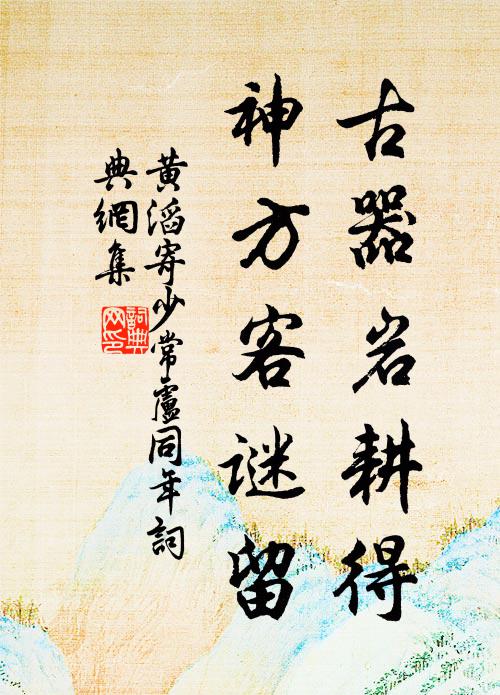 古器岩耕得
神方客谜留
黄滔寄少常盧同年詞
典網集
詞典
网印